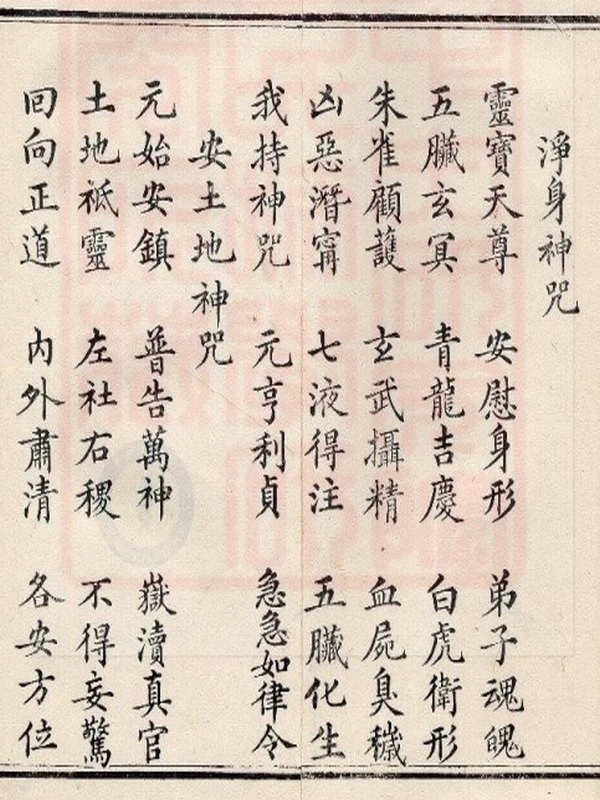 淨身神咒
靈寶天尊 安慰身形 弟子魂魄
五臟玄冥 青龍吉慶 白虎衛形
朱雀顧護 玄武攝精 血屍臭穢
凶惡潛窜 七液得注 五臟化生
我持神咒 元亨利貞 急急如律令
安土地神咒
元始安鎮 普告萬神 嶽瀆真官
土地祗靈 左社右稷 不得妄驚
回向正道 內外肅清 各安方位